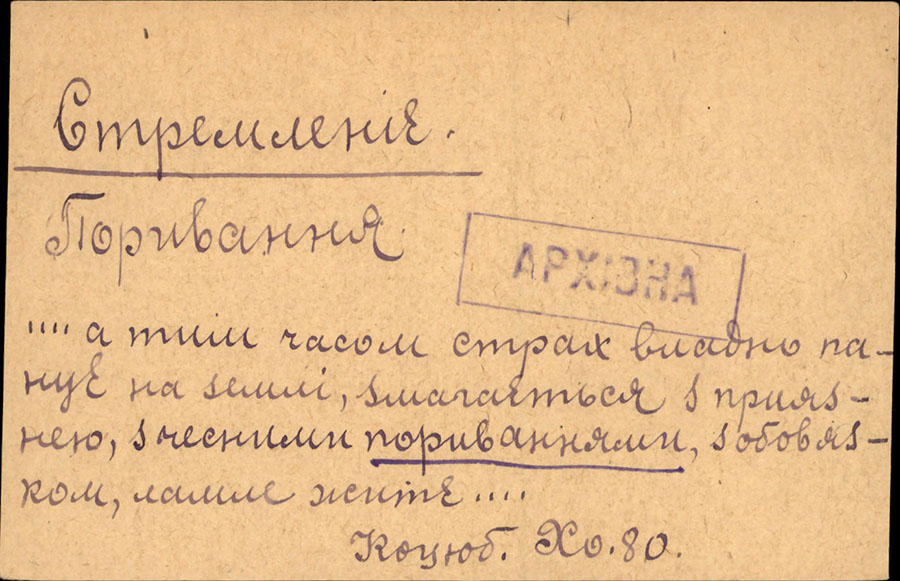 Стремленіє.
Поривання
АРХІВНА
.... а тим часом страх владно па-
нує на землі, змагається з прияз-
нею, з чесними пориваннями, з обовяз-
ком, ламле житє ....
Коцюб. Хо. 80.